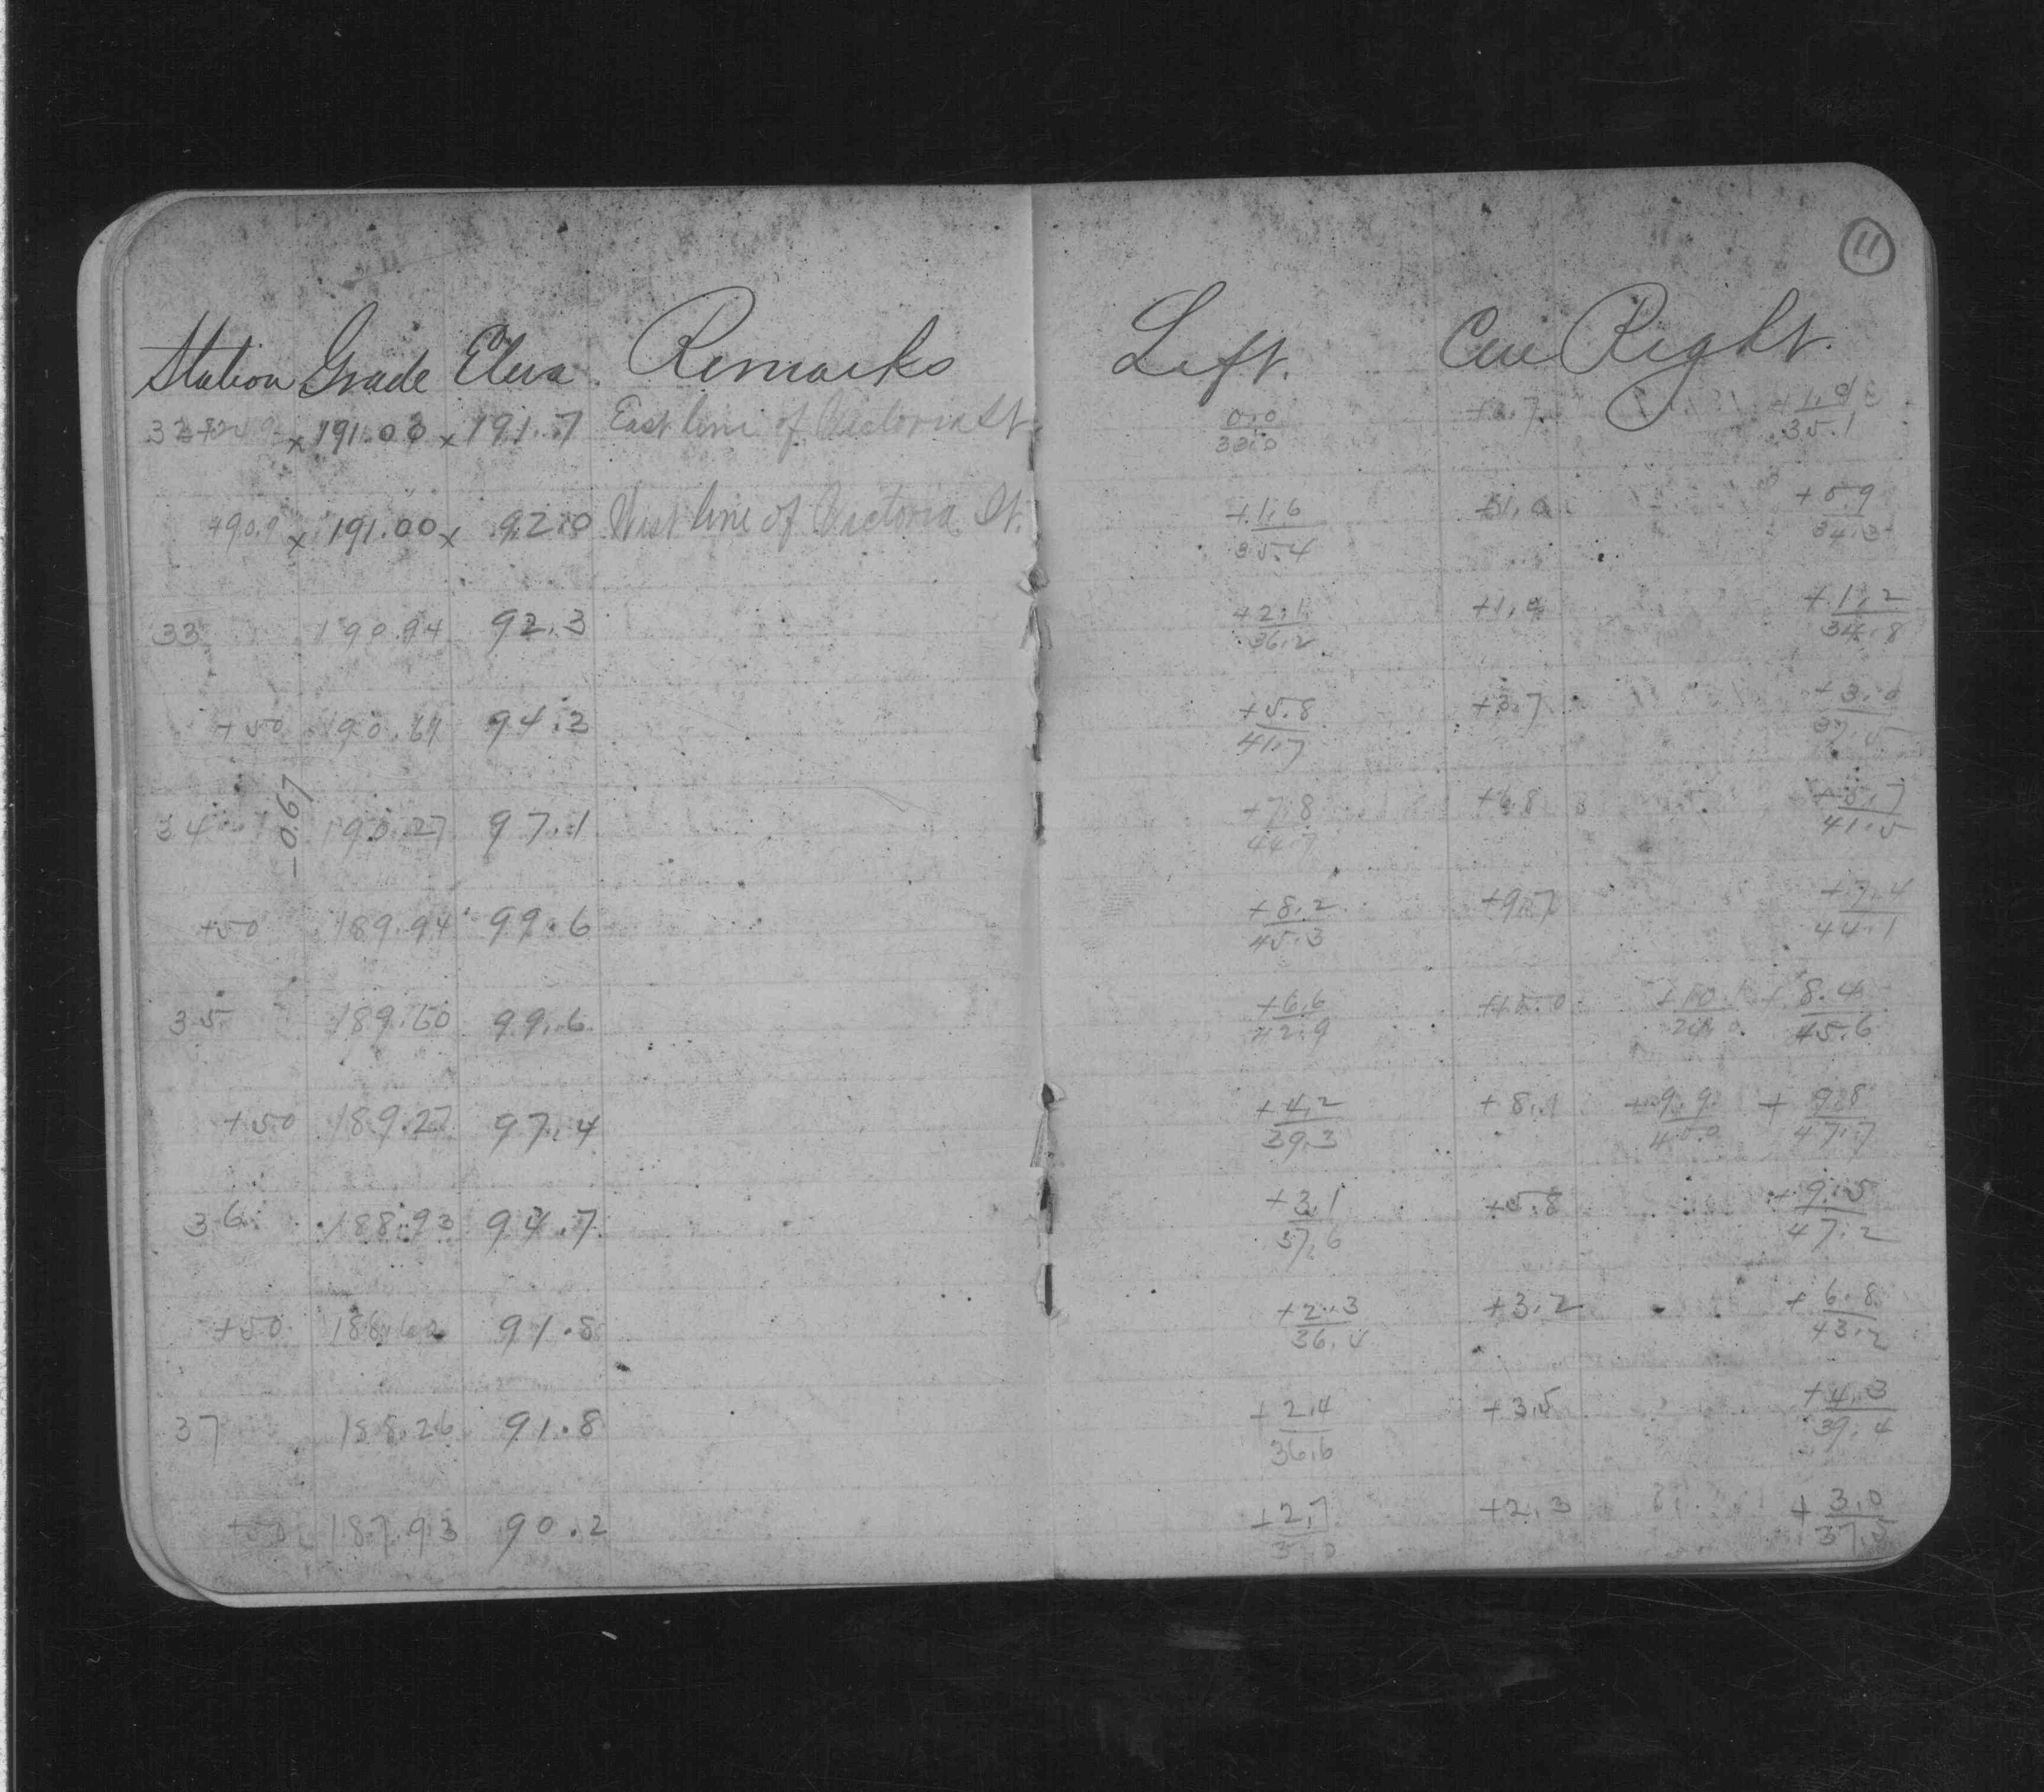 11
Station Grade Eleva. Remarks Left. Cen Right.
x 191.03 x 191.7 East line of Victoria St. 0.0 +1.0
33.0 35.1
+90.9 x 191.00 x 92.0 West line of Victoria St. +1.6 +1.0 +0.9
35.4 34.3
33 190.94 92.3 +2.1 +1.2
36.2 34.8
+50 190.61 94.3 +5.8 +3.7 +3.0
41.7 37.5
-0.67
34 190.27 97.1 +7.8 +6.8 +5.7
44.7 41.5
+50 189.94 99.6 +8.2 +9.7 +7.4
45.3 44.1
35 189.60 99.6 +6.6 +10.0 +10.1 +8.4
42.9 45.6
+50 189.27 97.4 +4.2 +8.1 +9.9 +9.8
39.3 47.7
36 188.93 94.7 +3.1 +5.8 +9.5
37.6 47.2
+50 91.8 +2.3 +3.2 +6.8
36.4 43.2
37 188.26 91.8 +2.4 +3.5 +4.3
36.6 39.4
+50 187.93 90.2 +2.7 +2.3 +3.0
37.5